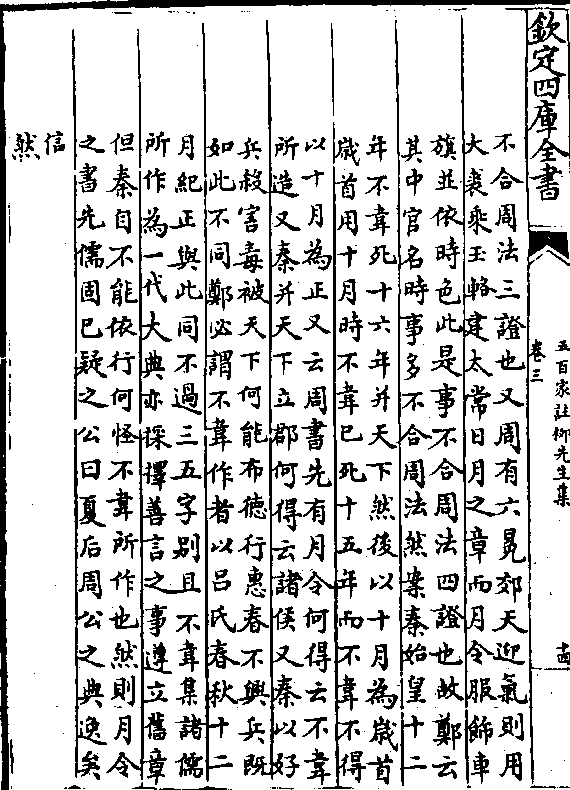 欽定四庫全書
五百家註柳先生集
卷三
十四
不合周法三證也又周有六冕郊天迎氣則用
大裘乘玉輅建太常日月之章而月令服飾車
旗並依時色此是事不合周法四證也故鄭云
其中官名時事多不合周法然案秦始皇十二
年不韋死十六年并天下然後以十月為嵗首
嵗首用十月時不韋已死十五年而不韋不得
以十月為正又云周書先有月令何得云不韋
所造又秦并天下立郡何得云諸侯又秦以好
兵殺害毒被天下何能布德行惠春不興兵既
如此不同鄭必謂不韋作者以呂氏春秋十二
月紀正與此同不過三五字别且不韋集諸儒
所作為一代大典亦採擇善言之事遵立舊章
但秦自不能依行何怪不韋所作也然則月令
之書先儒固已疑之公曰夏后周公之典逸矣
信
然